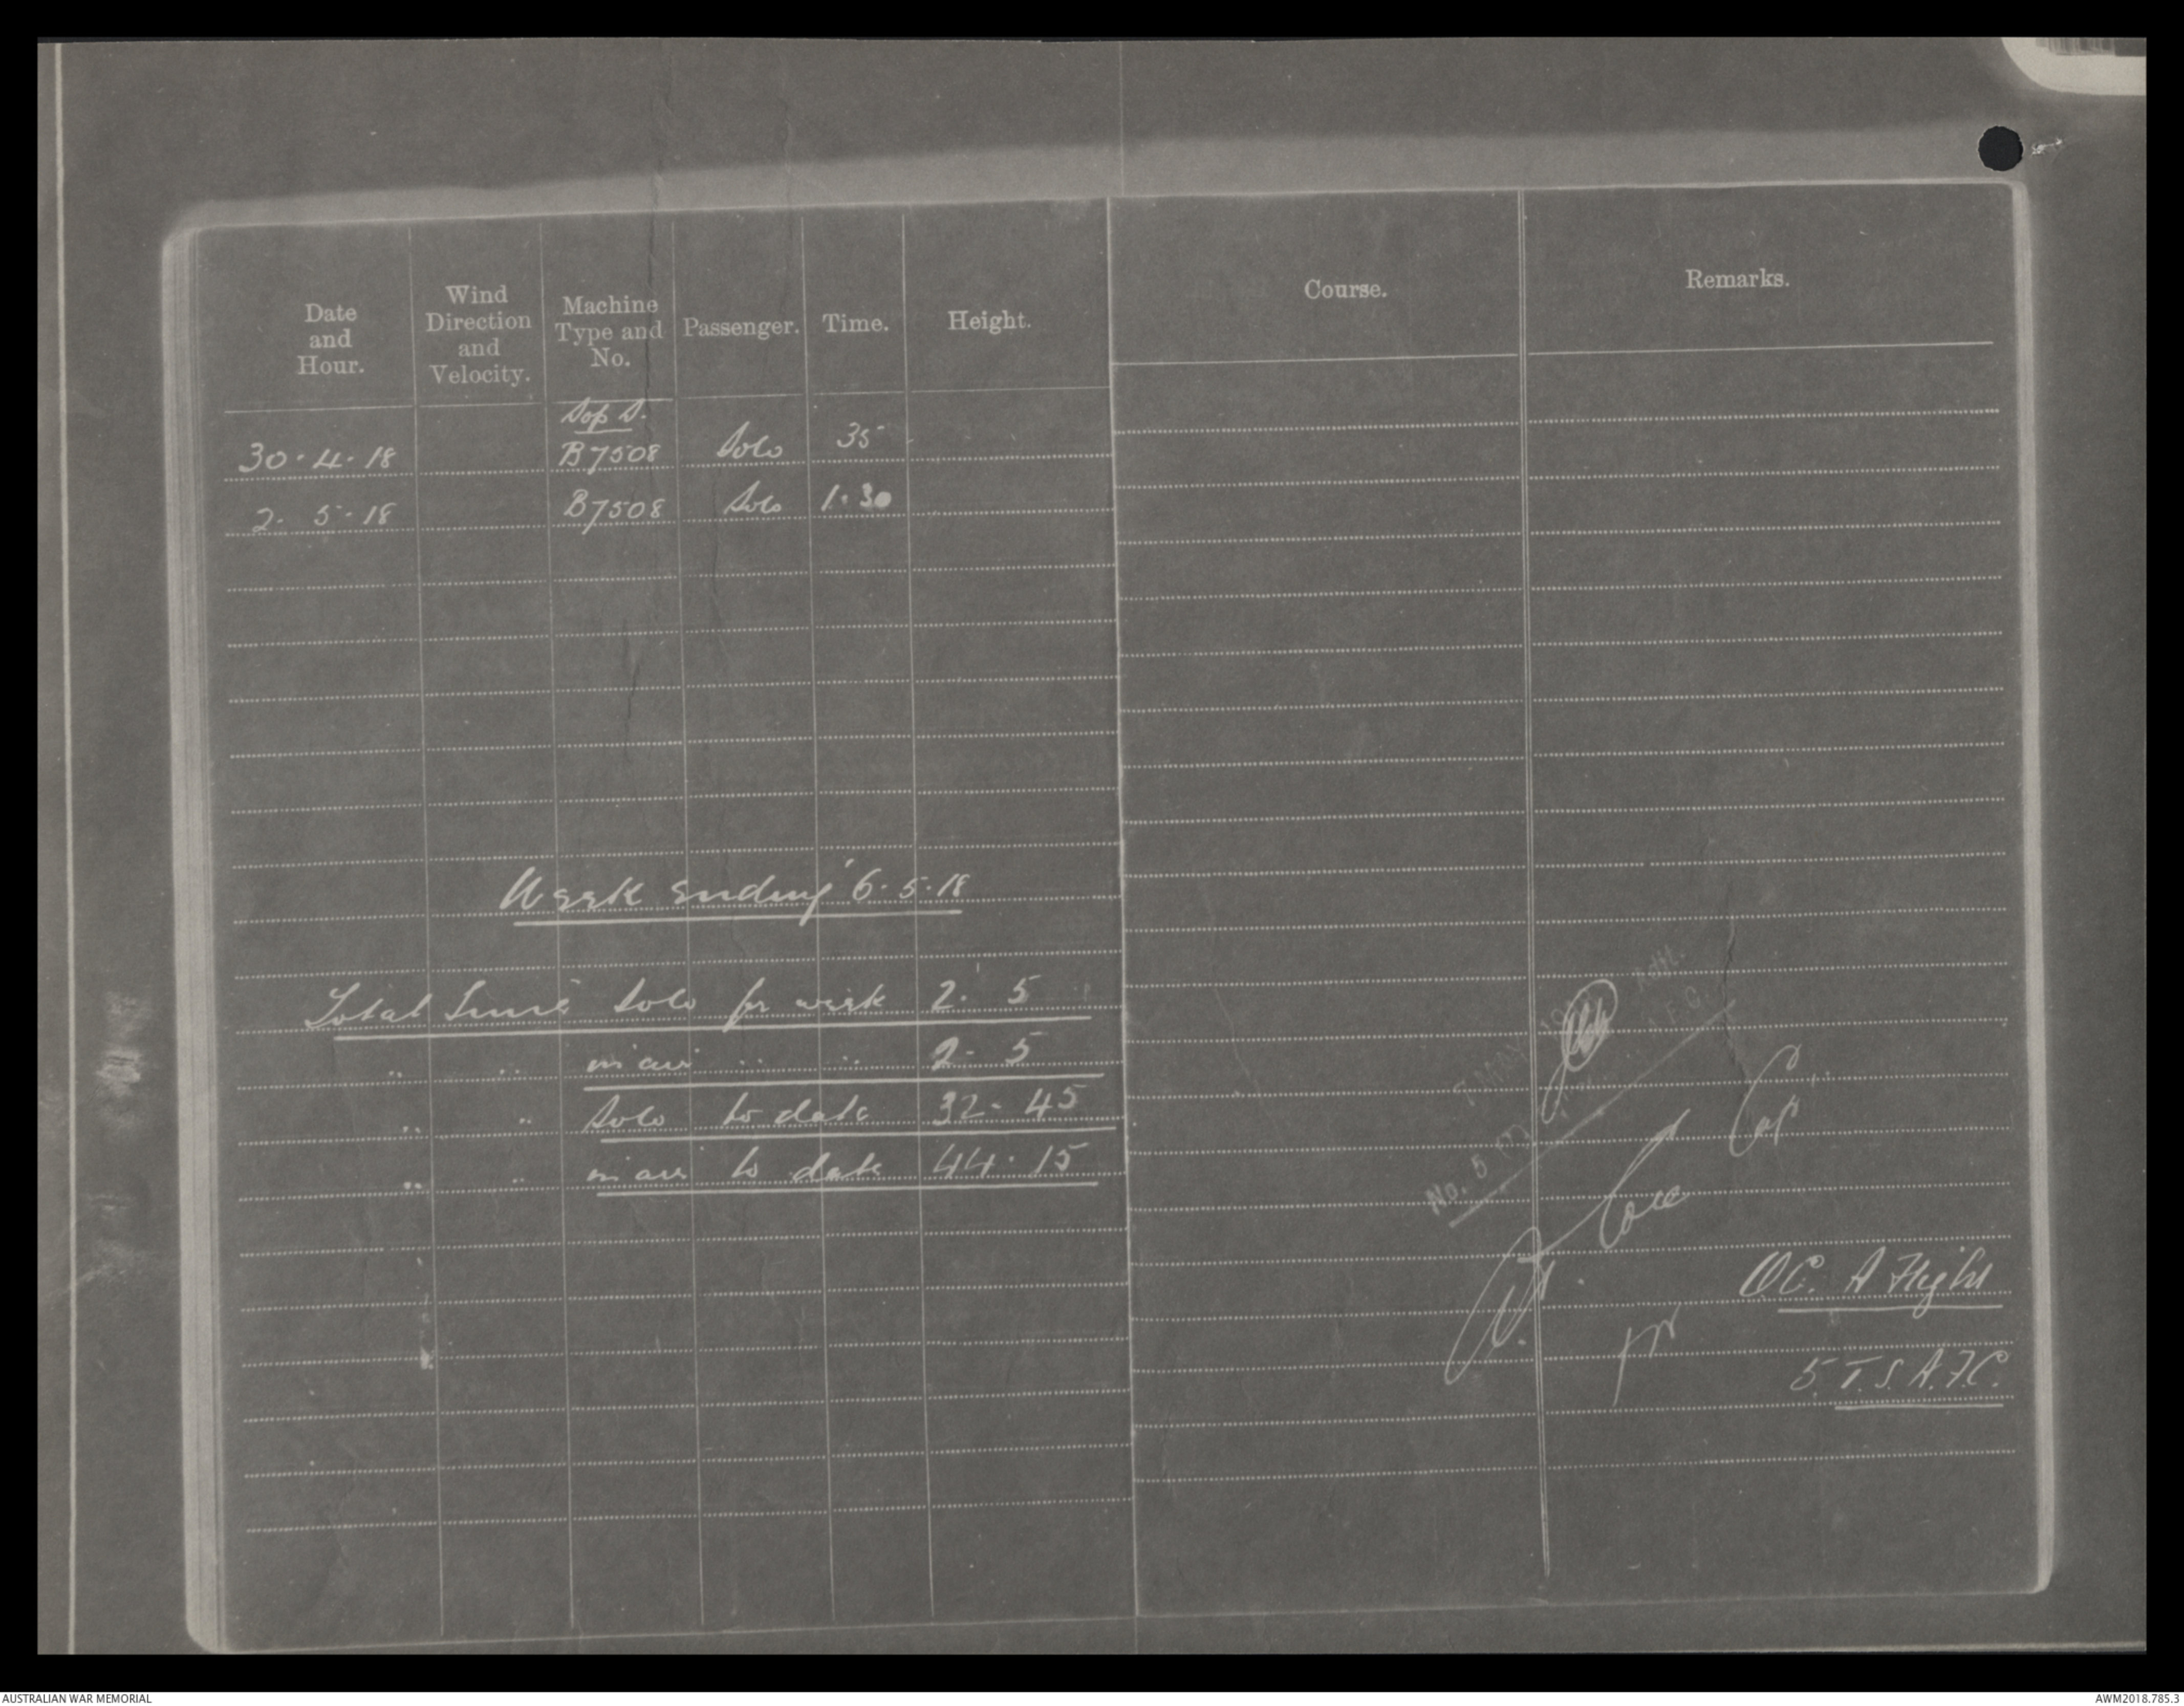 Date and Hour.
Wind Direction and Velocity.
Machine Type and No.
Passenger.
Time.
Height.
Course.
Remarks.
Sop S.
30.4.18 B7508 Solo 35
2. 5.18 B7508 Solo 1.30
Week ending 6.5.18
Total Time Solo for week 2. 5
" " in air " " 2. 5
" " Solo to date 32. 45
" " in air to date 44. 15
No. 5
Capt
OC. A Flight
5. T.S. A.F.C.
AUSTRALIAN WAR MEMORIAL
AWM2018.785.3